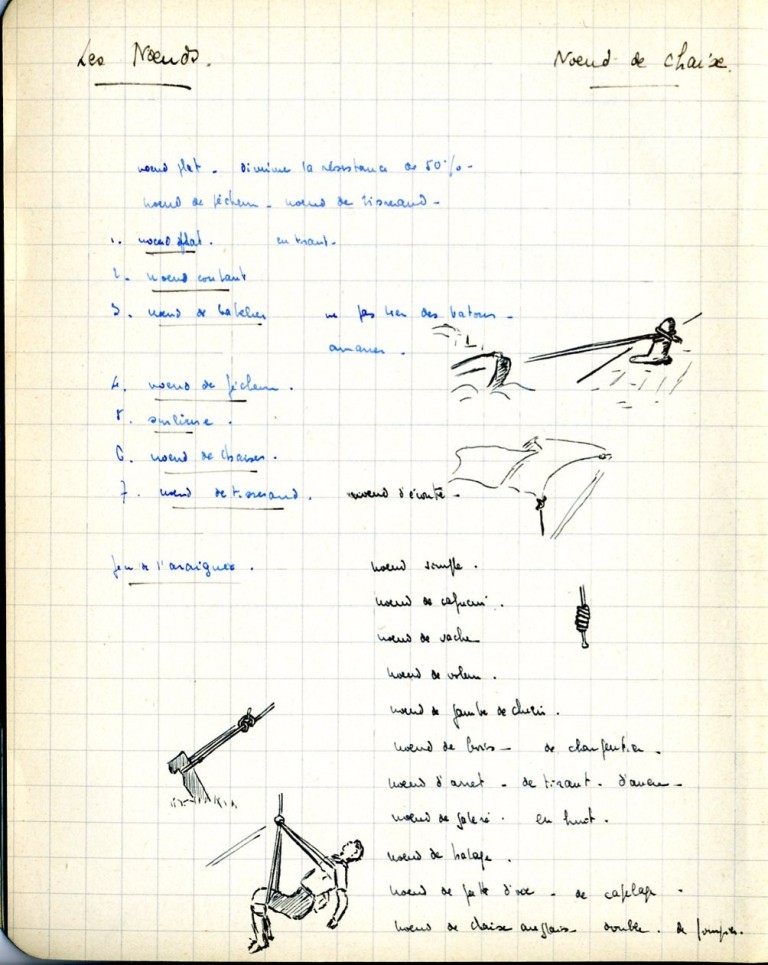 Les Nœuds.
Nœud de chaise.
nœud plat - diminue la résistance de 50% -
nœud de pêcheur - nœud de tisserand -
1. nœud plat. en tirant.
2. nœud coulant
3. nœud de batelier ne pas lier des batons -
amarrer.
4. nœud de pêcheur.
5. surliure.
6. nœud de chaises.
7. nœud de tisserand. nœud d'écoute -
jeu de l'araignée.
nœud simple.
nœud de capucin.
nœud de vache
nœud de voleur.
nœud de jambe de chien.
nœud de bois - de charpentier -
nœud d'arret - de tirant - d'ancre -
nœud de galère. en huit.
nœud de halage.
nœud de patte d'oie - de capelage -
nœud de chaise anglais - double. de pompier.